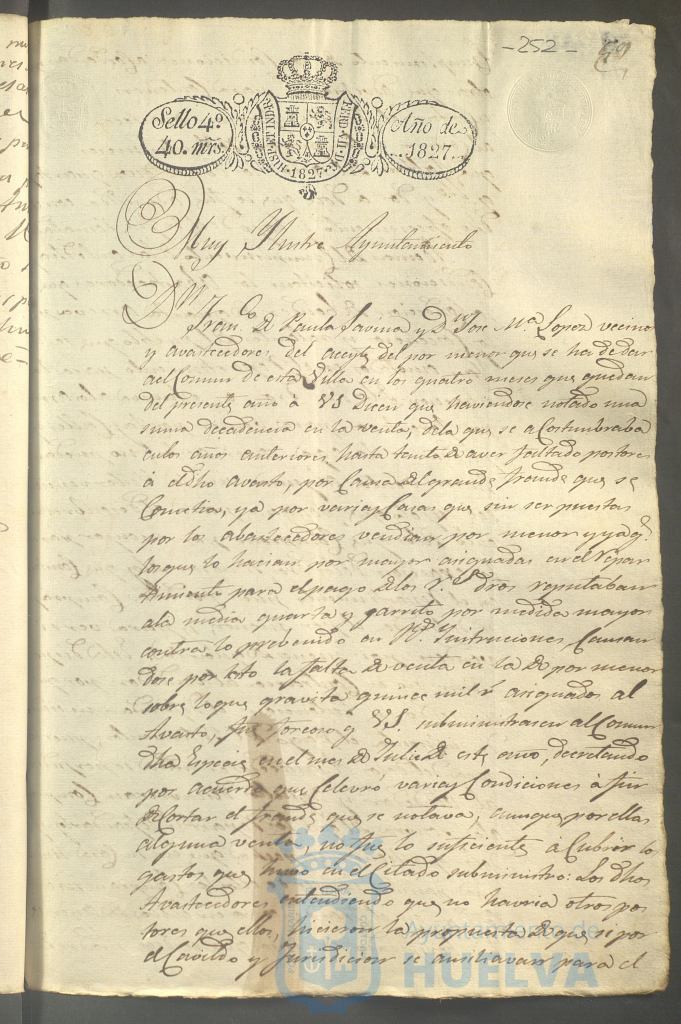 -252-
59
Sello 4º
40. mrs.
HISP. ET IND. R.
FERD. VII. D. G.
·1827·
Año de
1827.
Muy Ylustre Ayuntamiento
Dn Franco de Paula Savina y Dn Jose Ma Lopez vecinos
y avastecedores del aceyte del por menor que se ha de dar
al Comun de esta Villa en los quatro meses que quedan
del presente año à VS Dicen que haviendose notado una
suma decadencia en la venta, de la que se acostumbraba
en los años anteriores hasta tanto de aver faltado postores
à el dho avasto, por Causa del grande fraude que se
Cometia, ya por varias Casas que sin ser puestas
por los abastecedores vendian por menor y ya q.
los que lo hacian por mayor asignadas en el Repar
timiento para el pago de los Rs dros reputaban
ala media quarta y jarrito por medida mayor
contra lo prebenido en Rs Ynstruciones, Causan
dose por esto la falta de venta en la de por menor
sobre lo que gravita quince mil rs asignados al
Avasto, fue forcoso q VS. subministrasen al Comun
dha Especie en el mes de Julio de este año, decretando
por acuerdo que Celevró varias Condiciones à fin
de Cortar el fraude que se notava, aunque por ellas
alguna venta, no fue lo suficiente à Cubrir lo
gastos que huvo en el Citado subministro: Los dhos
Avastecedores entendiendo que no havria otros pos
tores que ellos, hicieron la propuesta de que si por
el Cavildo y Jurisdicion se auxiliavan para el
Ayuntamiento de
HUELVA